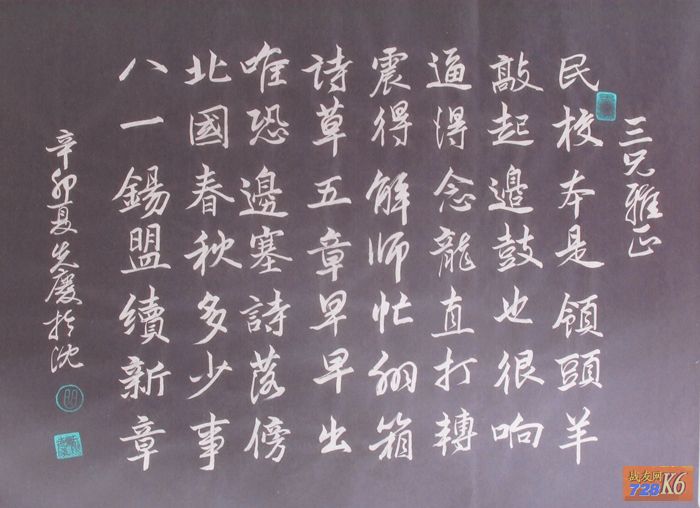 三兄雅正
民校本是領頭羊
敲起邊鼓也很响
逼得念龍直打轉
震得解師忙翻箱
詩草五章早早出
唯恐邊塞詩落傍
北國春秋多少事
八一錫盟續新章
辛卯夏先慶於沈
战友网
728K6